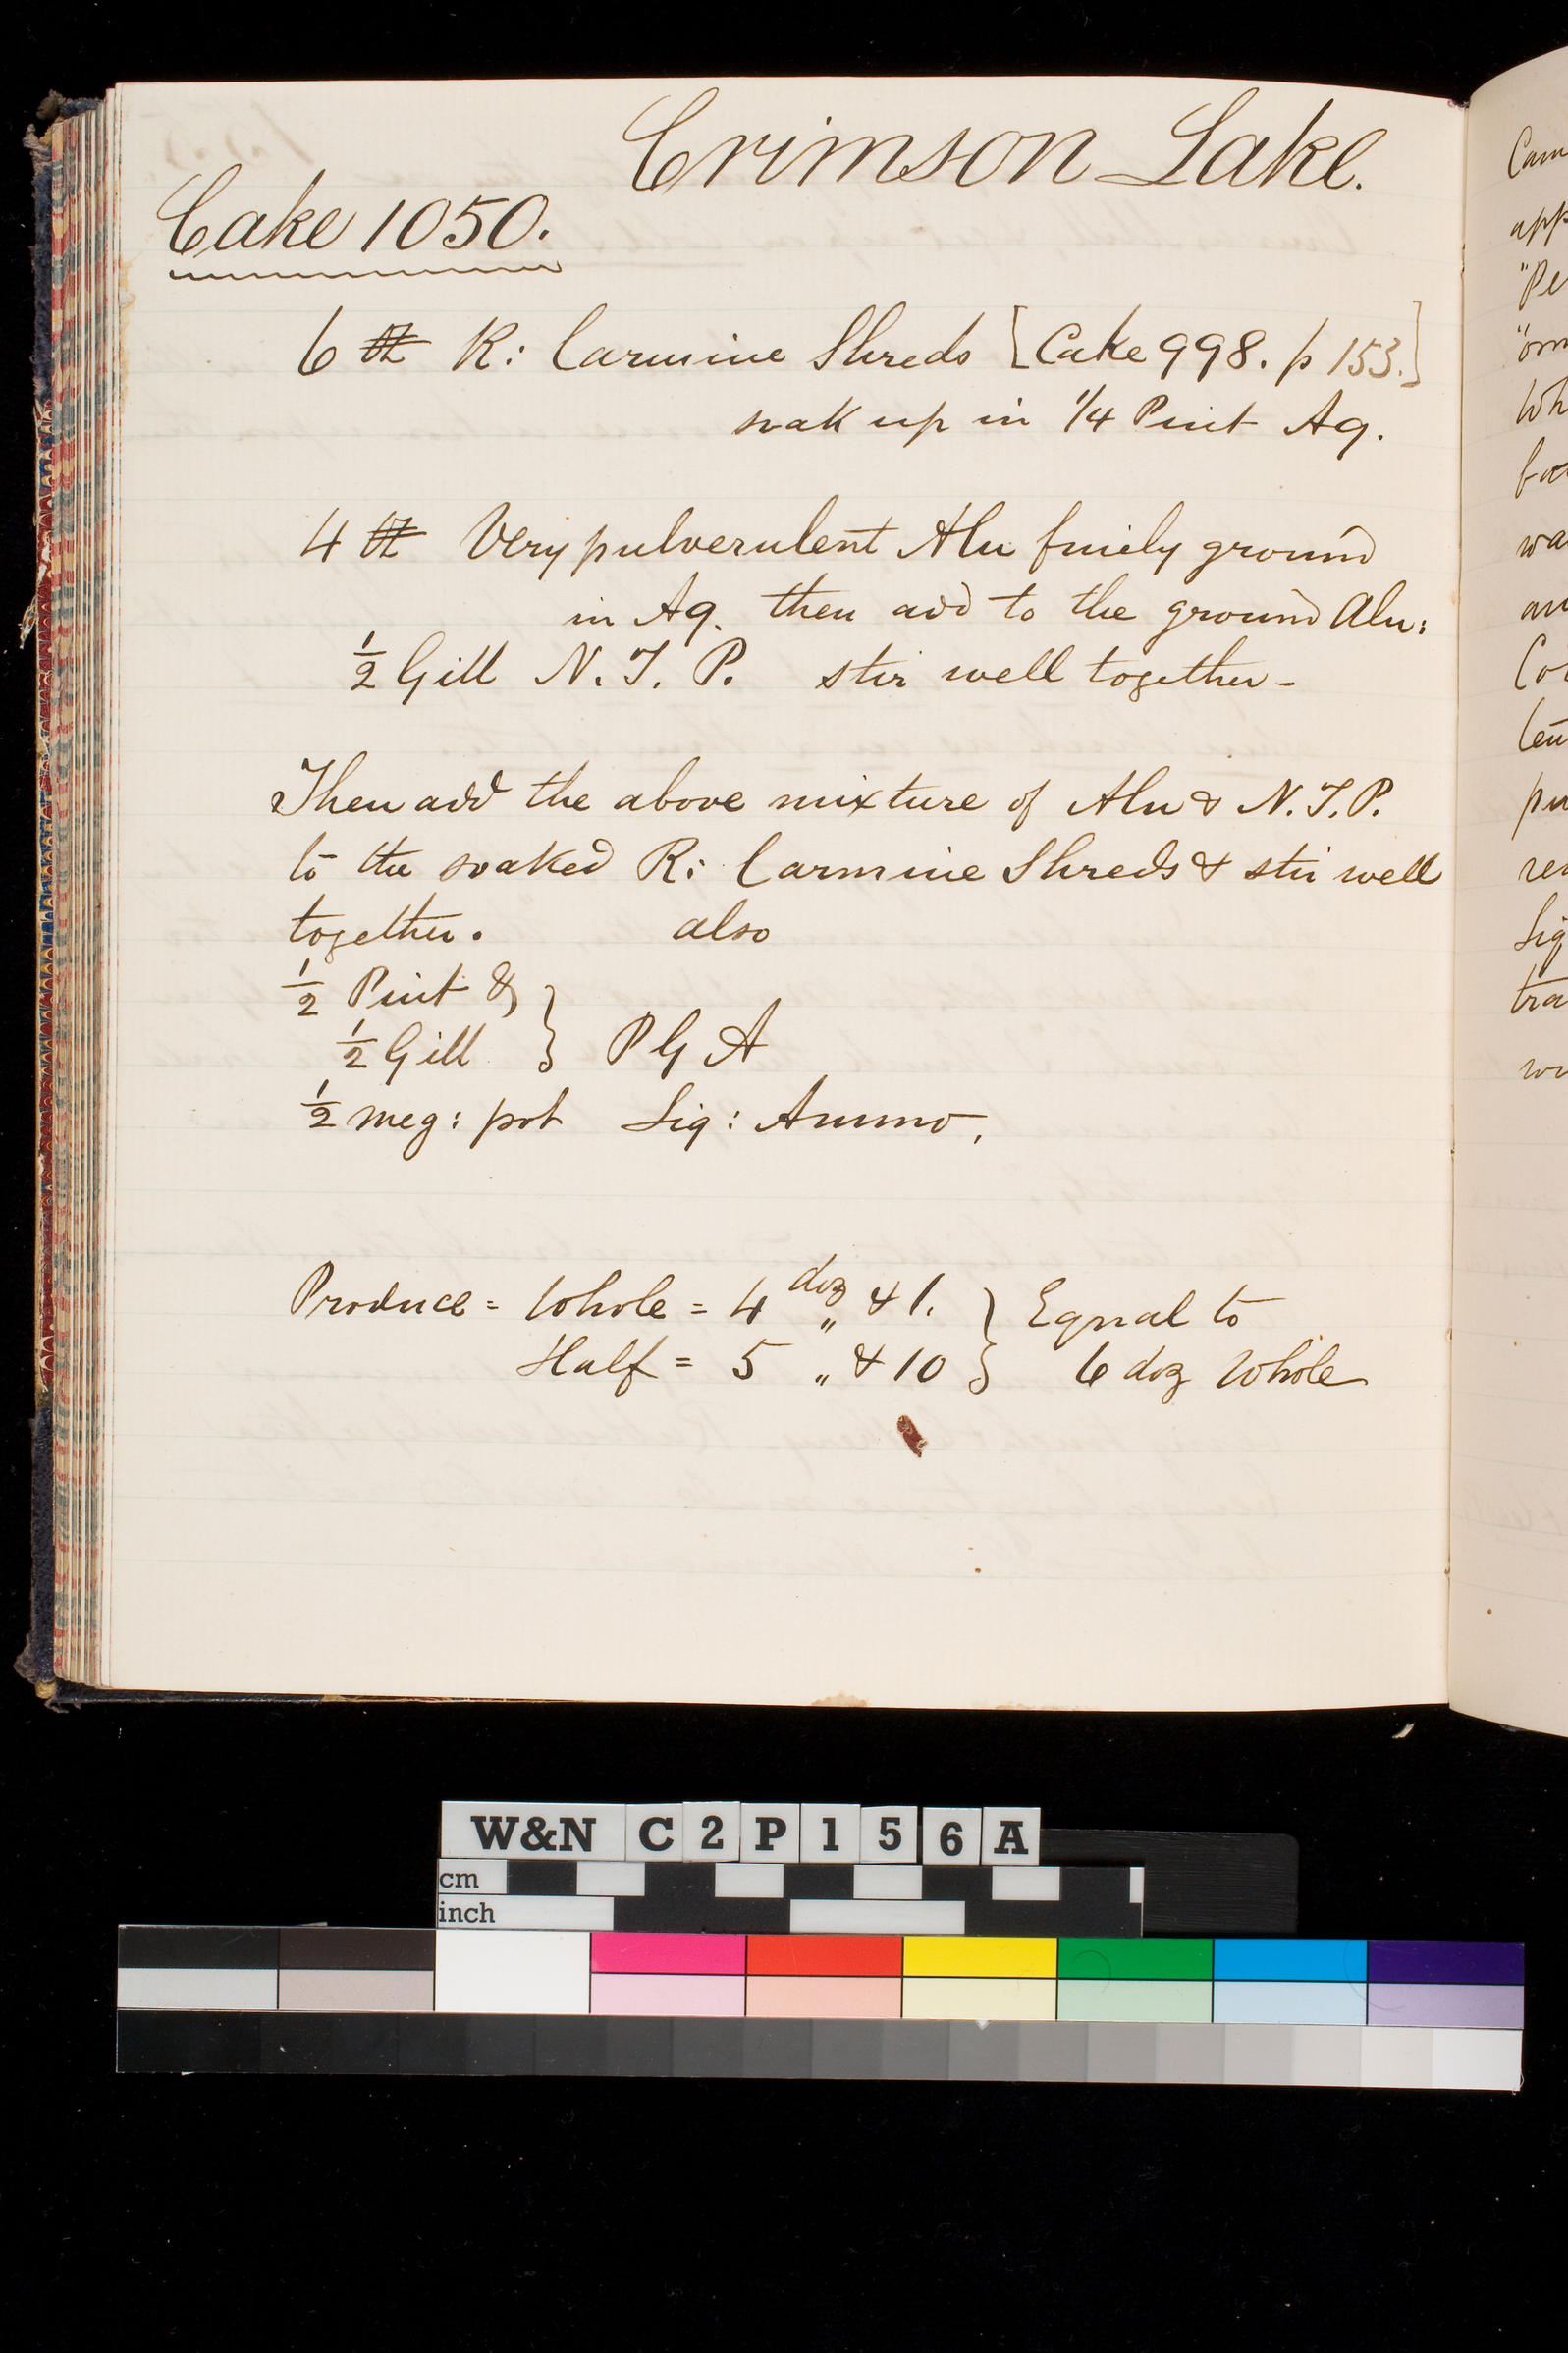 Crimson Lake.
Cake 1050.
6 ℔ R: Carmine Shreds [Cake 998. p 153.]
soak up in 1/4 Pint Aq.
4 ℔ Very pulverulent Alu finely ground
in Aq. then add to the ground Alu:
1/2 Gill N. T. P. stir well together-
Then add the above mixture of Alu & N.T.P.
to the soaked R: Carmine Shreds & stir well
together. also
1/2 Pint &
1/2 Gill } P G A
1/2 meg: pot Liq: Ammo,
Produce = Whole = 4 doz " & 1. } Equal to
Half = 5 " & 10 } 6 doz Whole
Cam
app
"Pe
"orn
Wh
wa
an
pu
Liq
tra
W&N C2P156A
cm
inch